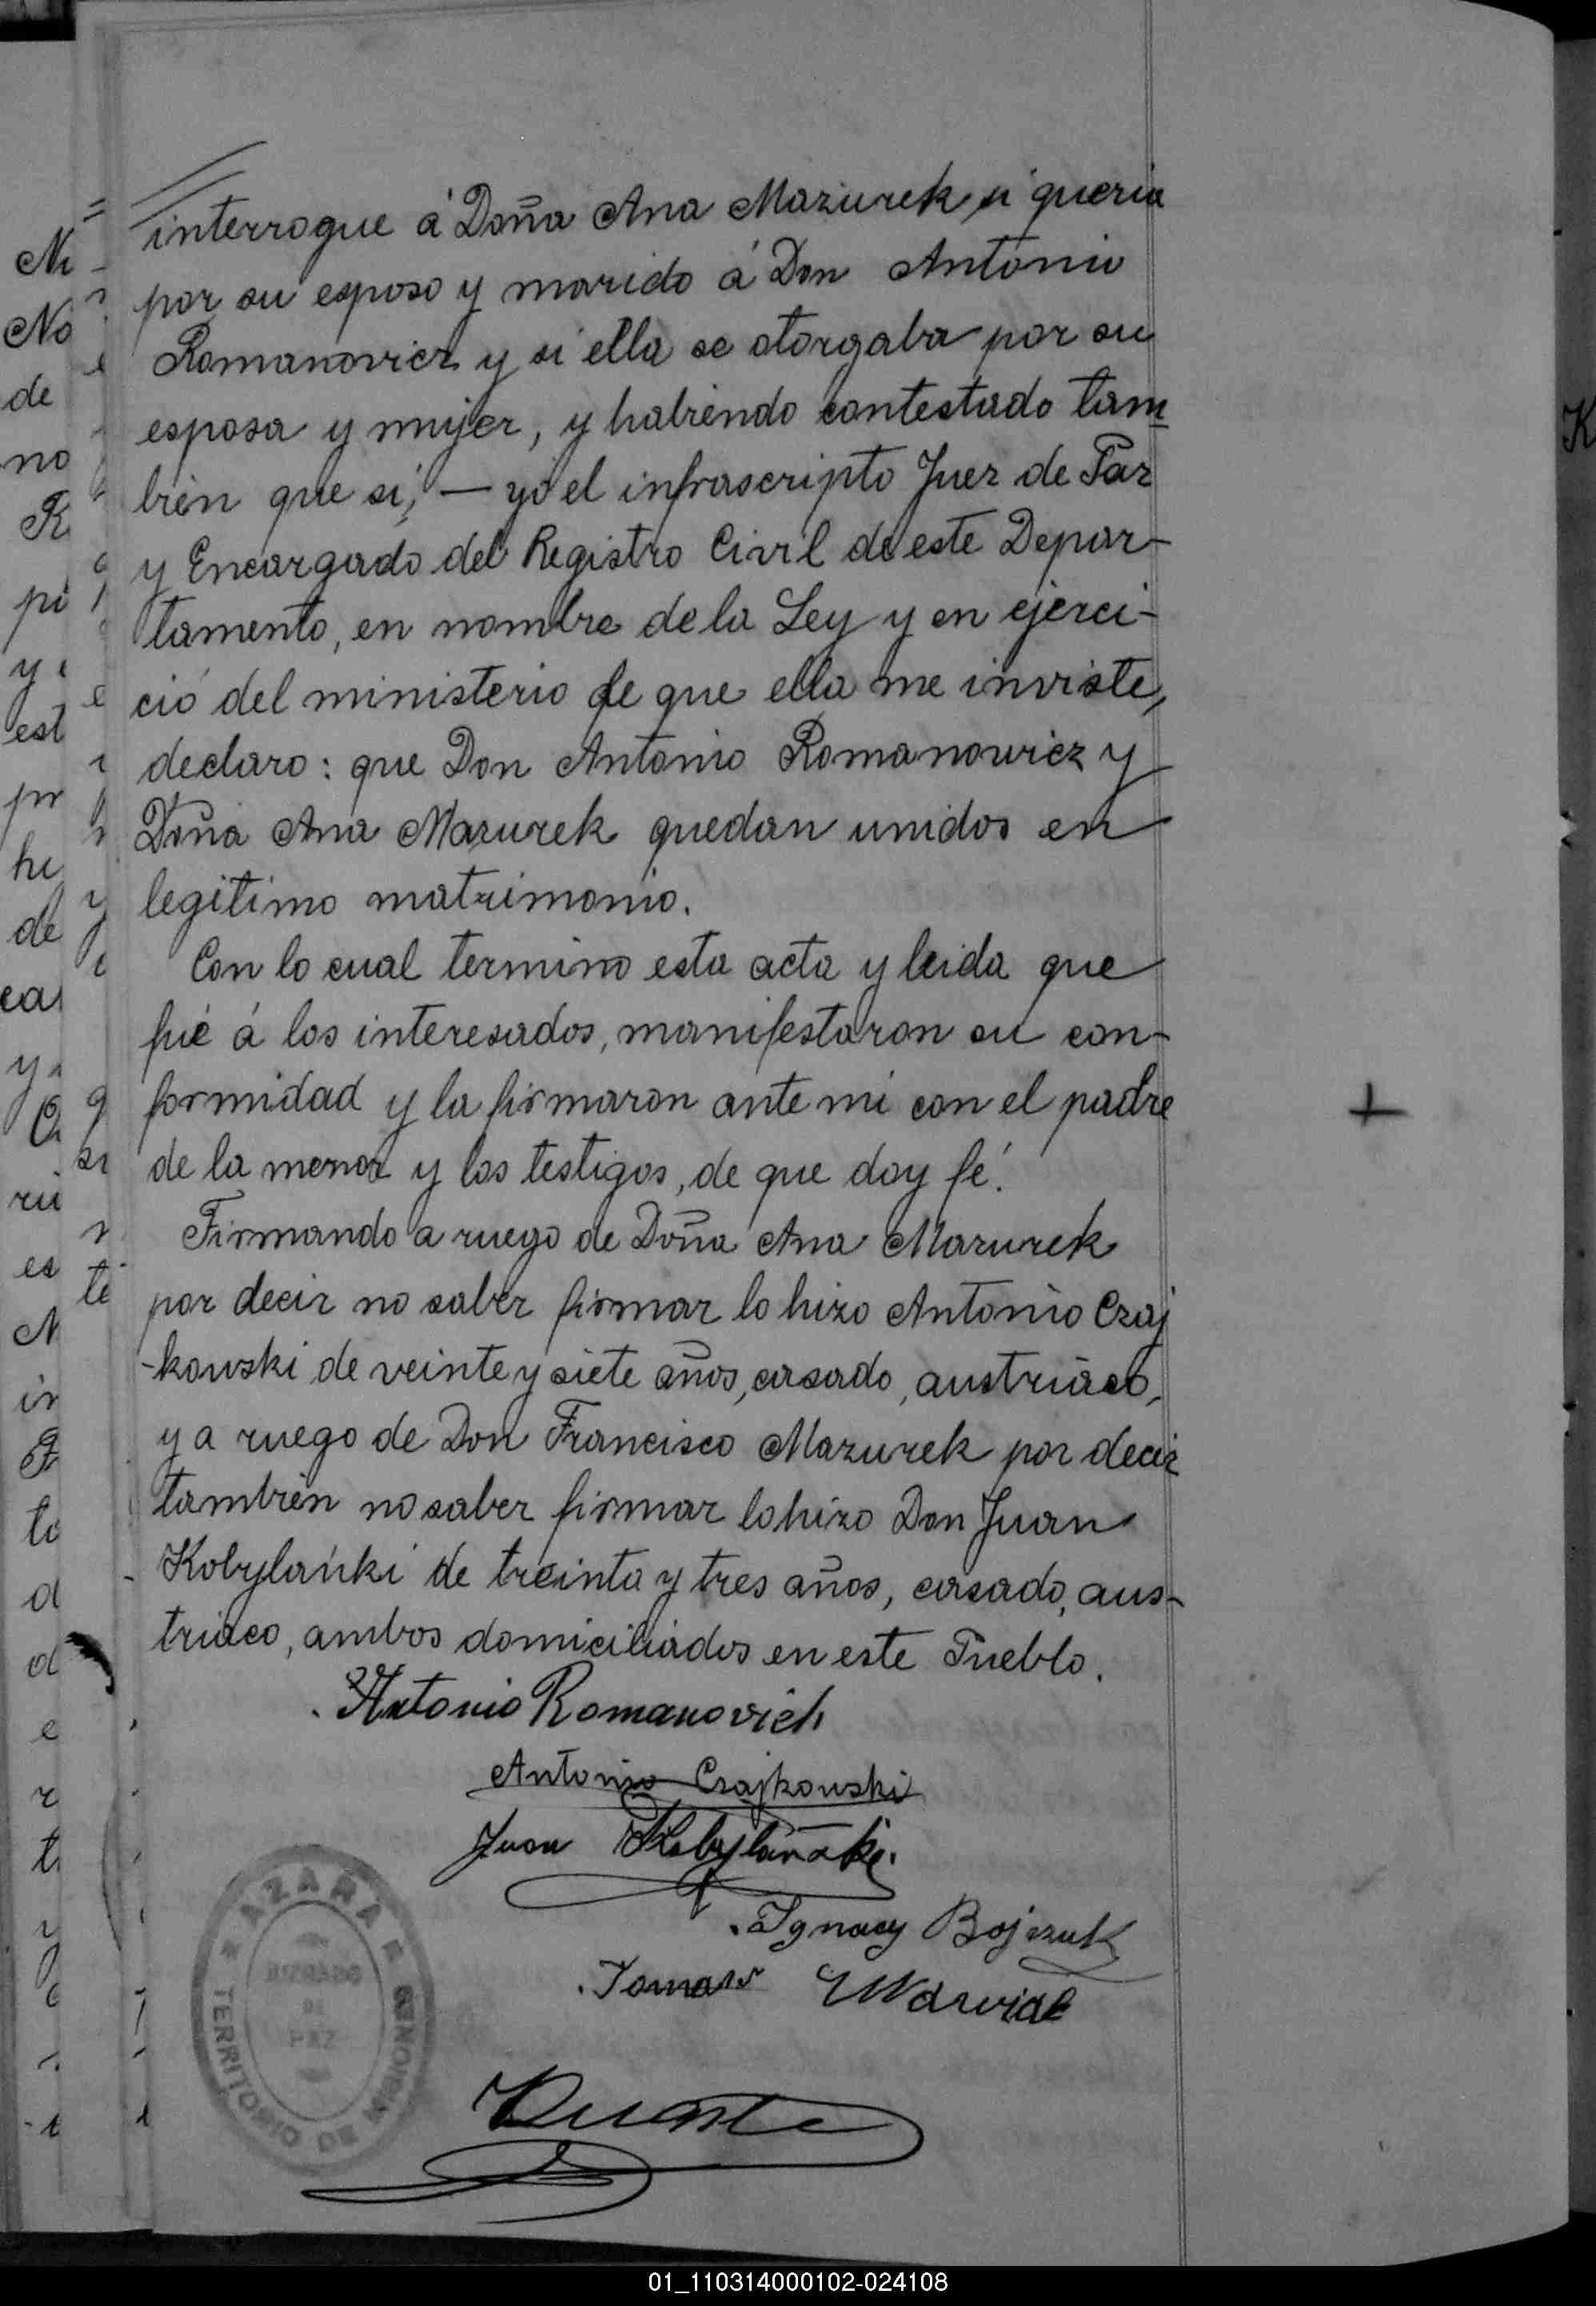 interrogue á Doña Ana Maziurek si queria
por su esposo y marido á Don Antonio
Romanovicz y si ella se otorgaba por su
esposa y mujer, y habiendo contestado tam
bien que si; — yo el infrascripto Juez de Paz
y Encargado del Registro Civil de este Depar-
tamento, en nombre de la Ley y en ejerci-
cio del ministerio de que ella me inviste,
declaro: que Don Antonio Romanowicz y
Doña Ana Mazurek quedan unidos en
legitimo matrimonio.
Con lo cual termino esta acta y leida que
fué á los interesados, manifestaron su con-
formidad y la firmaron ante mi con el padre
de la menor y los testigos, de que doy fé.
Firmando a ruego de Doña Ana Mazurek
por decir no saber firmar lo hizo Antonio Czaj
-kowski de veinte y siete años, casado, austriaco,
y a ruego de Don Francisco Mazurek por decir
tambien no saber firmar lo hizo Don Juan
Kobylańki de treinta y tres años, casado, aus-
triaco, ambos domiciliados en este Pueblo.
Antonio Romanovich
Antonio Czajkowski
Juan Kobylański.
Ignacy Bojczuk
AZARA
JUZGADO
DE
PAZ
TERRITORIO DE MISIONES
01_110314000102-024108